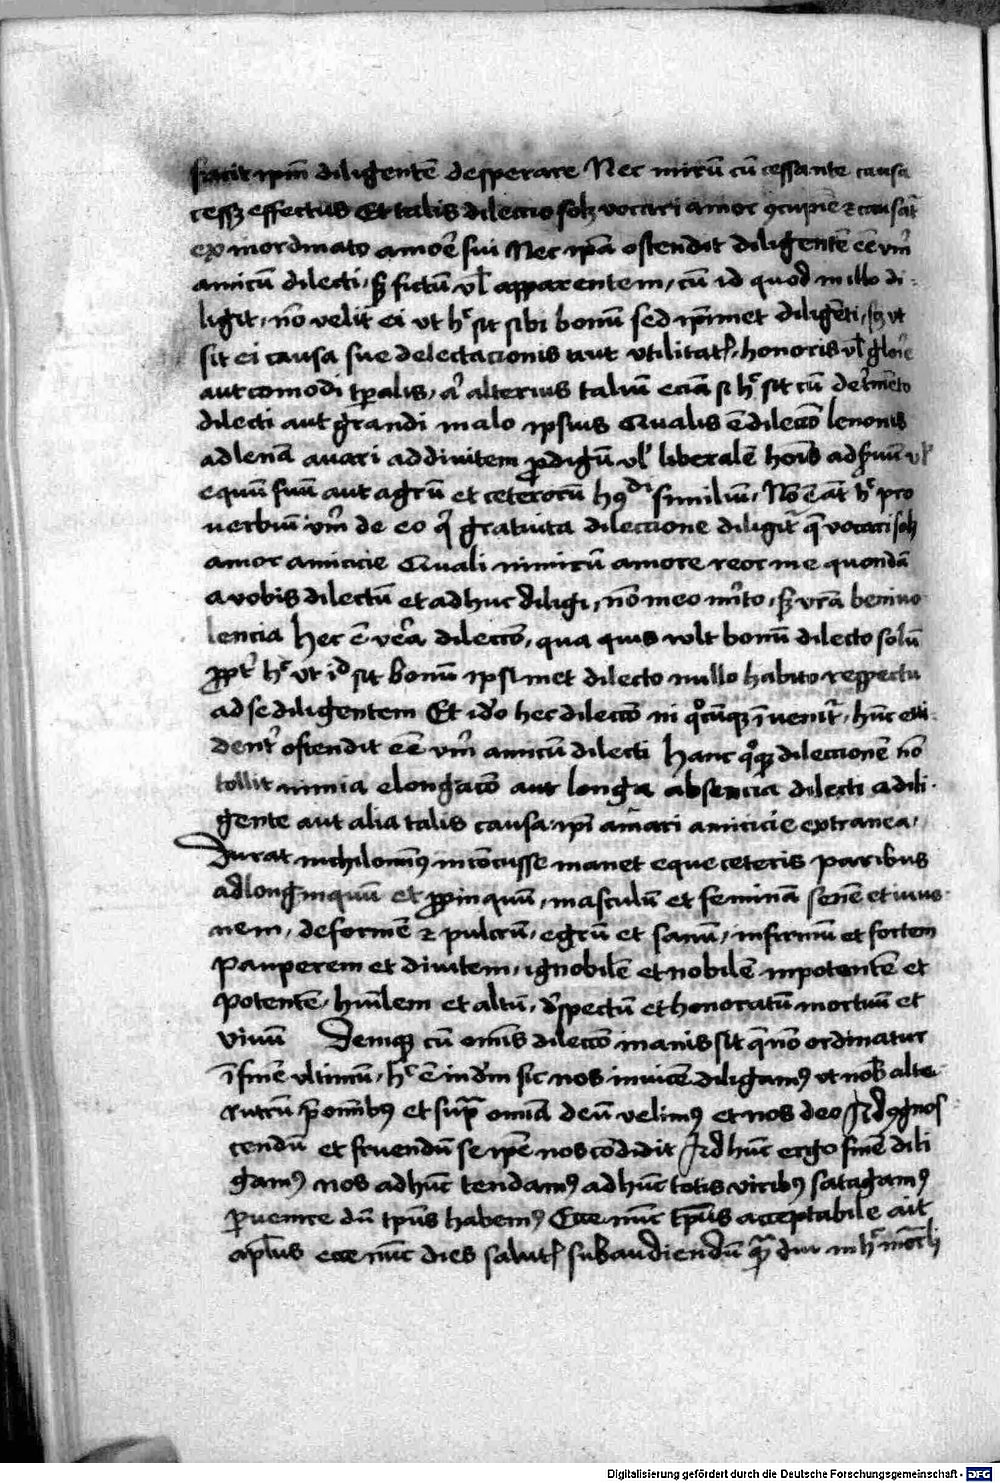 facit ipm̄ diligentē desperare Nec mirū cū cessante causa
cessꝫ effectus Et talis dileccio solꝫ vocari amor ꝯcupiē ⁊ causat᷑
ex inordinato amoē sui Nec ip̄a ostendit diligentē eē vm̄
amicū dilecti, sꝫ fictū vl̄ apparentem, cū id quod in illo di-
ligit, nō velit ei vt hͨ sit sibi bonū sed ip̄imet diligēti, sꝫ vt
sit ei causa sue delectacionis aut vtilitatꝭ, honoris vl̄ glorie
aut comodi tp̄alis, aͥ alterius taliū eciā si hͨ sit cū det̄mēto
dilecti aut grandi malo ipsius Qualis ē dileccō lenonis
ad lenā avari ad divitem ꝓdigū vl̄ liberalē hoīs ad ẜuū vl̄
equū suū aut agrū et ceterorū hꝯdi similiū, Nō eāt hͨ pro
verbiū vm̄ de eo qͥ gratuita dileccione diligit᷑ q̄ vocari solꝫ
amor amicicie Quali nimirū amore reor me quondā
a vobis dilectū et adhuc diligi, nō meo mīto, sꝫ vrā beniuo
lencia hec ē vēa dileccō, qua quis wlt bonū dilecto solū
ꝓpt̄ hͨ vt id sit bonū ipsimet dilecto nullo habito respectu
ad se diligentem Et idō hec dileccō in qͦcūqꝫ īuenit᷑, hūc evi-
dent̄ ostendit eē vm̄ amicū dilecti hanc qͦqꝫ dileccionē nō
tollit nimia elongacō aut longa absencia dilecti a dili-
gente aut alia talis causa ip̄i amari amicicie extranea,
Durat nichilomīꝯ incōcusse manet eque ceteris paribus
ad longinquū et ꝓpinquū, masculū et feminā senē et iuue-
nem, deformē ⁊ pulcrū, egrū et sanū, infirmū et fortem
Pauperem et divitem, ignobilē et nobilē inpotentē et
Potentē, hūilem et altū, dispectū et honoratū mortuū et
vivū Demqꝫ cū omīs dileccō inanis sit q̄ nō ordinatur
ī finē vltimū, hͨ ē in dm̄ sic nos invicē diligamꝯ vt nob̄ alte-
rutrū p̄ omībꝯ et supᷓ omīa deū velimꝯ et nos deo Ad ꝯgnos-
cendū et fruendū se ip̄e nos cōdidit Ad hūc ergo finē dili
gamꝯ nos ad hūc tendamꝯ ad hūc totis viribꝯ satagamꝯ
ꝑvenire dū tp̄us habemꝯ Ecce nūc tp̄us acceptabile ait
ap̄lus ecce nūc dies salutꝭ subaudiendū qᷓm diu in hͨ
Digitalisierung gefördert durch die Deutsche Forschungsgemeinschaft - DFG